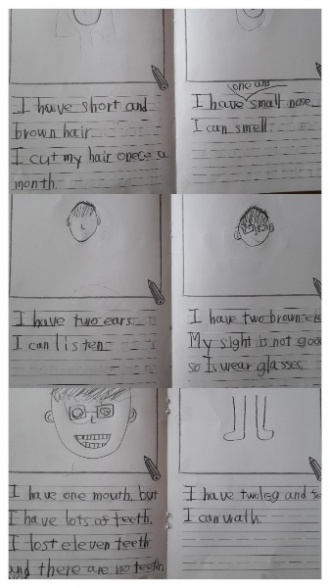 I have short and
brown hair.
I cut my hair onece a
month.
one and
I have small nose
I can smell.
I have two ears.
I can listen
I have two brown
My sight is not good
so Is wear glasses
I have one mouth, but
I have lots of teeth.
I lost eleven teeth
and there are no teeth
I have two leg and
I can walk